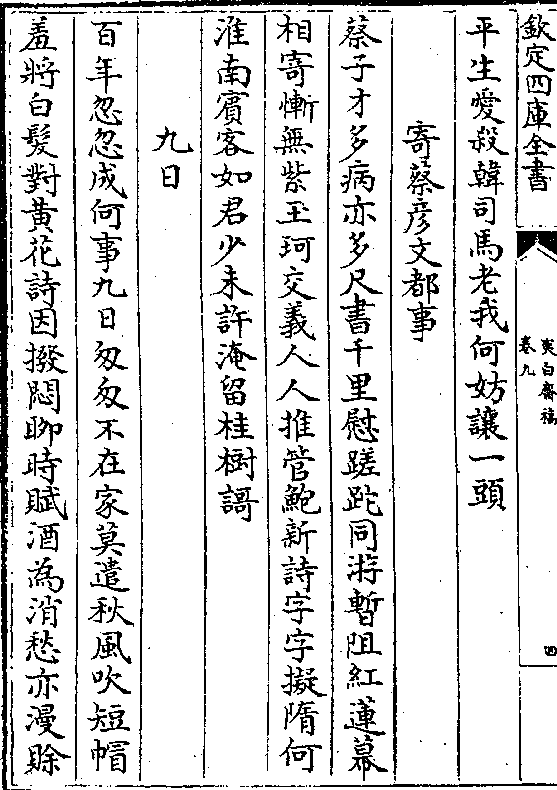 欽定四庫全書
夷白齋稿
卷九
四
平生愛殺韓司馬老我何妨讓一頭
寄蔡彦文都事
蔡子才多病亦多尺書千里慰蹉跎同游暫阻紅蓮幕
相寄慚無紫玉珂交義人人推管鮑新詩字字擬隋何
淮南賓客如君少未許淹留桂樹謌
九日
百年忽忽成何事九日匆匆不在家莫遣秋風吹短帽
羞將白髮對黄花詩因撥悶聊時賦酒為消愁亦漫賖